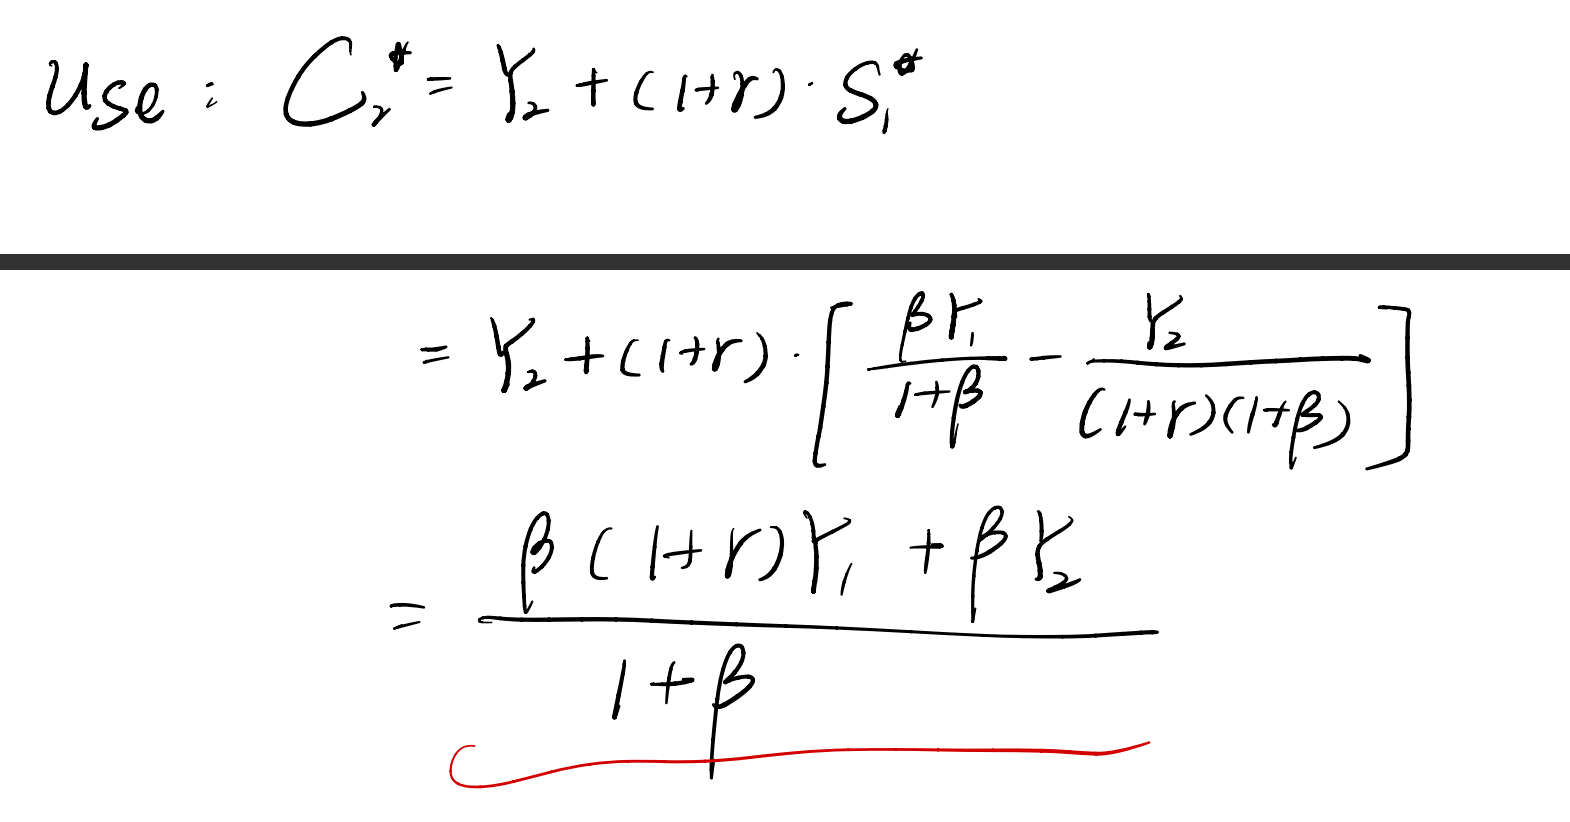 Use : C₂* = Y₂ + (1+r) · S₁*
= Y₂ + (1+r) · [ βY₁ / 1+β − Y₂ / (1+r)(1+β) ]
= β(1+r)Y₁ + βY₂ / 1+β